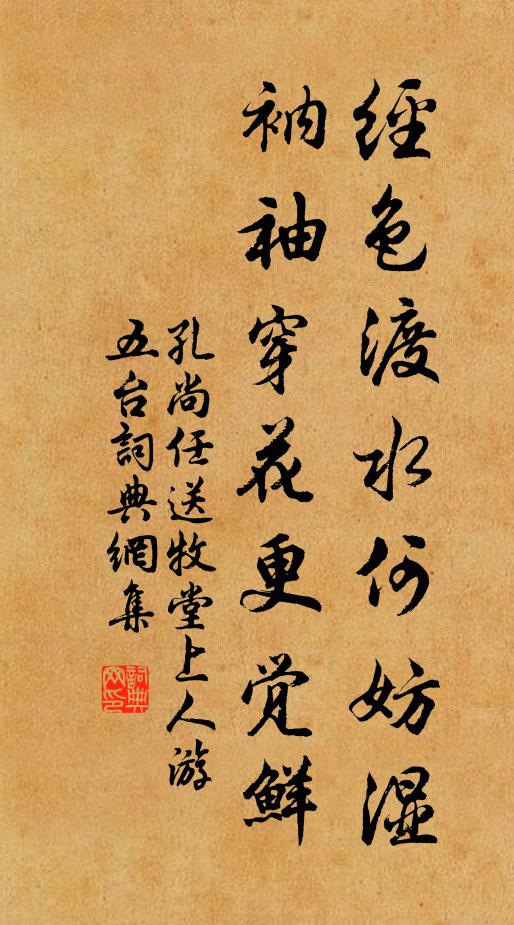 經色渡水何妨濕
衲袖穿花更覺鮮
孔尚任送牧堂上人游
五台詞典網集
詞典網印